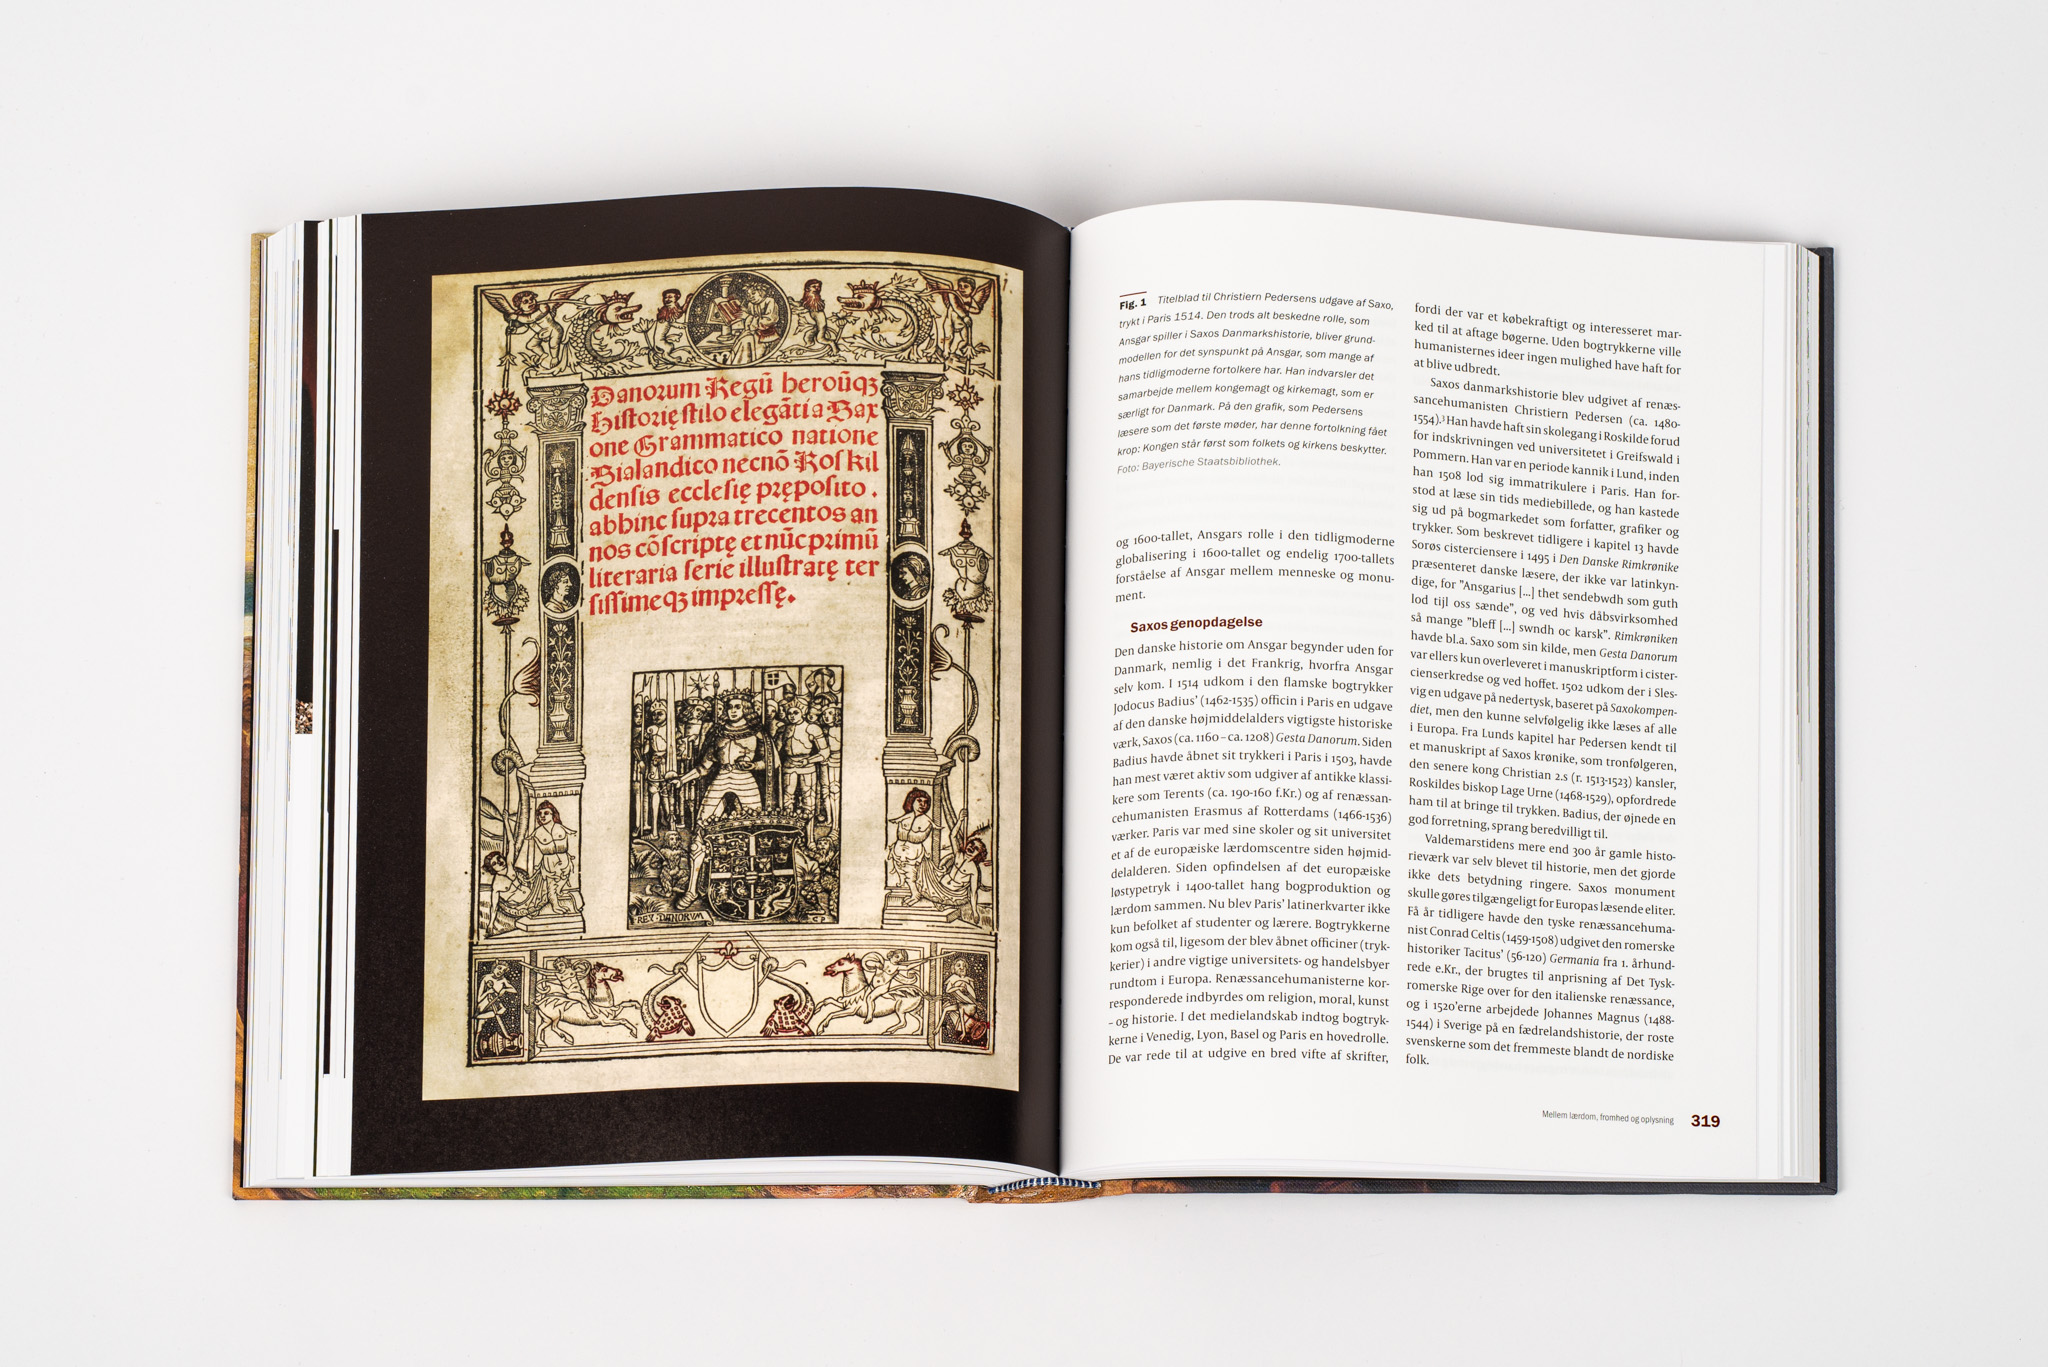 Danorum Regū heroūqꝫ
Historię stilo elegāti a Sax
one Grammatico natione
Sialandico necnō Roskil
densis ecclesię pręposito.
abhinc supra trecentos an
nos cōscriptę et nūc primū
literaria serie illustratę ter
sissimeqꝫ impressę.
REX·DANORVM
CP
Fig. 1 Titelblad til Christiern Pedersens udgave af Saxo,
trykt i Paris 1514. Den trods alt beskedne rolle, som
Ansgar spiller i Saxos Danmarkshistorie, bliver grund-
modellen for det synspunkt på Ansgar, som mange af
hans tidligmoderne fortolkere har. Han indvarsler det
samarbejde mellem kongemagt og kirkemagt, som er
særligt for Danmark. På den grafik, som Pedersens
læsere som det første møder, har denne fortolkning fået
krop: Kongen står først som folkets og kirkens beskytter.
Foto: Bayerische Staatsbibliothek.
og 1600-tallet, Ansgars rolle i den tidligmoderne
globalisering i 1600-tallet og endelig 1700-tallets
forståelse af Ansgar mellem menneske og monu-
ment.
Saxos genopdagelse
Den danske historie om Ansgar begynder uden for
Danmark, nemlig i det Frankrig, hvorfra Ansgar
selv kom. I 1514 udkom i den flamske bogtrykker
Jodocus Badius' (1462-1535) officin i Paris en udgave
af den danske højmiddelalders vigtigste historiske
værk, Saxos (ca. 1160 – ca. 1208) Gesta Danorum. Siden
Badius havde åbnet sit trykkeri i Paris i 1503, havde
han mest været aktiv som udgiver af antikke klassi-
kere som Terents (ca. 190-160 f.Kr.) og af renæssan-
cehumanisten Erasmus af Rotterdams (1466-1536)
værker. Paris var med sine skoler og sit universitet
et af de europæiske lærdomscentre siden højmid-
delalderen. Siden opfindelsen af det europæiske
løstypetryk i 1400-tallet hang bogproduktion og
lærdom sammen. Nu blev Paris' latinerkvarter ikke
kun befolket af studenter og lærere. Bogtrykkerne
kom også til, ligesom der blev åbnet officiner (tryk-
kerier) i andre vigtige universitets- og handelsbyer
rundtom i Europa. Renæssancehumanisterne kor-
responderede indbyrdes om religion, moral, kunst
– og historie. I det medielandskab indtog bogtryk-
kerne i Venedig, Lyon, Basel og Paris en hovedrolle.
De var rede til at udgive en bred vifte af skrifter,
fordi der var et købekraftigt og interesseret mar-
ked til at aftage bøgerne. Uden bogtrykkerne ville
humanisternes ideer ingen mulighed have haft for
at blive udbredt.
Saxos danmarkshistorie blev udgivet af renæs-
sancehumanisten Christiern Pedersen (ca. 1480-
1554).³ Han havde haft sin skolegang i Roskilde forud
for indskrivningen ved universitetet i Greifswald i
Pommern. Han var en periode kannik i Lund, inden
han 1508 lod sig immatrikulere i Paris. Han for-
stod at læse sin tids mediebillede, og han kastede
sig ud på bogmarkedet som forfatter, grafiker og
trykker. Som beskrevet tidligere i kapitel 13 havde
Sorøs cisterciensere i 1495 i Den Danske Rimkrønike
præsenteret danske læsere, der ikke var latinkyn-
dige, for "Ansgarius [...] thet sendebwdh som guth
lod tijl oss sænde", og ved hvis dåbsvirksomhed
så mange "bleff [...] swndh oc karsk". Rimkrøniken
havde bl.a. Saxo som sin kilde, men Gesta Danorum
var ellers kun overleveret i manuskriptform i cister-
cienserkredse og ved hoffet. 1502 udkom der i Sles-
vig en udgave på nedertysk, baseret på Saxokompen-
diet, men den kunne selvfølgelig ikke læses af alle
i Europa. Fra Lunds kapitel har Pedersen kendt til
et manuskript af Saxos krønike, som tronfølgeren,
den senere kong Christian 2.s (r. 1513-1523) kansler,
Roskildes biskop Lage Urne (1468-1529), opfordrede
ham til at bringe til trykken. Badius, der øjnede en
god forretning, sprang beredvilligt til.
Valdemarstidens mere end 300 år gamle histo-
rieværk var selv blevet til historie, men det gjorde
ikke dets betydning ringere. Saxos monument
skulle gøres tilgængeligt for Europas læsende eliter.
Få år tidligere havde den tyske renæssancehuma-
nist Conrad Celtis (1459-1508) udgivet den romerske
historiker Tacitus' (56-120) Germania fra 1. århund-
rede e.Kr., der brugtes til anprisning af Det Tysk-
romerske Rige over for den italienske renæssance,
og i 1520'erne arbejdede Johannes Magnus (1488-
1544) i Sverige på en fædrelandshistorie, der roste
svenskerne som det fremmeste blandt de nordiske
folk.
Mellem lærdom, fromhed og oplysning 319